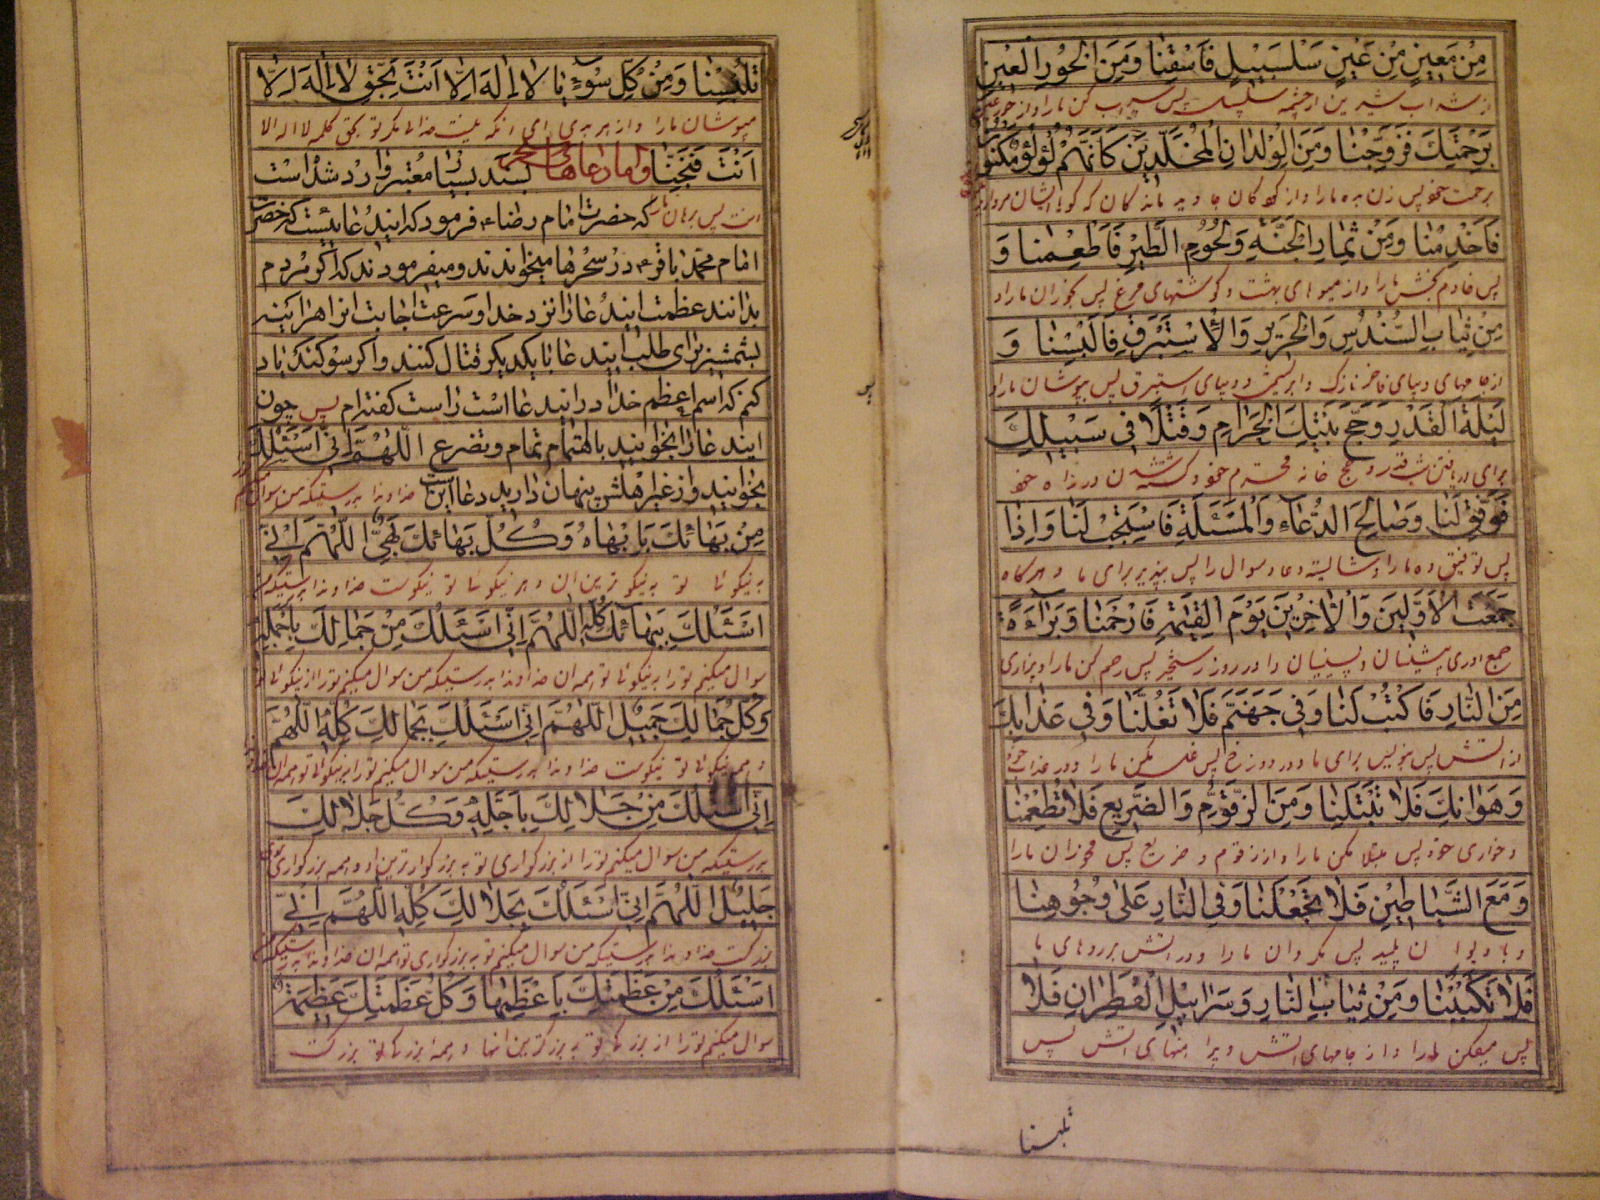 مِنْ مَعِينٍ مِنْ عَيْنٍ سَلْسَبِيلٍ فَاسْقِنَا وَمِنَ الْحُورِ الْعِينِ
پس سیراب کن ما را و از حور عین
بِرَحْمَتِكَ فَزَوِّجْنَا وَمِنَ الْوِلْدَانِ الْمُخَلَّدِينَ كَأَنَّهُمْ لُؤْلُؤٌ مَكْنُونٌ
برحمت خود پس زن بده ما را و از
فَاَخْدِمْنَا وَمِنْ ثِمَارِ الْجَنَّةِ وَلُحُومِ الطَّيْرِ فَاَطْعِمْنَا وَ
پس خادم بخش ما را و از میوهای بهشت و گوشتهای مرغ پس بخوران ما را و
مِنْ ثِيَابِ السُّنْدُسِ وَالْحَرِيرِ وَالْاِسْتَبْرَقِ فَاَلْبِسْنَا وَ
از جامهای دیبای نازک و ابریشم و دیبای استبرق پس بپوشان ما را و
لَيْلَةَ الْقَدْرِ وَحَجَّ بَيْتِكَ الْحَرَامِ وَقَتْلًا فِي سَبِيلِكَ
حج خانه محترم خود و کشته شدن در راه خود
فَوَفِّقْ لَنَا وَصَالِحَ الدُّعَاءِ وَالْمَسْئَلَةِ فَاسْتَجِبْ لَنَا وَاِذَا
پس توفیق ده ما را و شایسته دعا و سوال را پس بپذیر برای ما و هرگاه
جَمَعْتَ الْاَوَّلِينَ وَالْاٰخِرِينَ يَوْمَ الْقِيٰمَةِ فَارْحَمْنَا وَبَرَاءَةً
جمع اوری پیشینیان و پسینیان را در روز رستخیز پس رحم کن ما را و بیزاری
مِنَ النَّارِ فَاكْتُبْ لَنَا وَفِي جَهَنَّمَ فَلَا تَغُلَّنَا وَفِي عَذَابِكَ
از اتش پس بنویس برای ما و در دوزخ پس غل مکن ما را و در عذاب خود
وَهَوَانِكَ فَلَا تَبْتَلِنَا وَمِنَ الزَّقُّومِ وَالضَّرِيعِ فَلَا تُطْعِمْنَا
و خواری خود پس مبتلا مکن ما را و از زقوم و ضریع پس مخوران ما را
وَمَعَ الشَّيَاطِينِ فَلَا تَجْعَلْنَا وَفِي النَّارِ عَلٰى وُجُوهِنَا
و با پلید پس مگردان ما را و در اتش بر روهای ما
فَلَا تَكْبُبْنَا وَمِنْ ثِيَابِ النَّارِ وَسَرَابِيلِ الْقَطِرَانِ فَلَا
پس میفکن ما را و از جامهای اتش و پیراهنهای اتش پس
تلبسنا
تُلْبِسْنَا وَمِنْ كُلِّ سُوءٍ يَا لَا اِلٰهَ اِلَّا اَنْتَ بِحَقِّ لَا اِلٰهَ اِلَّا
مپوشان ما را و از هر بدی ای انکه نیست خدا مگر تو بحق کلمه لا اله الا
اَنْتَ فَنَجِّنَا و اما دعاهای سحر بسند بسیار معتبر وارد شده است
انت پس برهان ما را که حضرت امام رضاء فرمود که ایندعائیست که حضرت
امام محمد باقر در سحرها میخواندند و میفرمودند که اگر مردم
بدانند عظمت ایندعا را نزد خدا و سرعت اجابت انرا هراینه
بشمشیر برای طلب ایندعا با یکدیگر قتال کنند و اگر سوگند یاد
کنم که اسم اعظم خدا در ایندعا است راست گفته‌ام پس چون
ایندعا را بخوانید باهتمام تمام و تضرع اَللّٰهُمَّ اِنِّي اَسْئَلُكَ
بخوانید و از غیر اهلش پنهان دارید دعا اینست خداوندا بدرستیکه من سوال میکنم
مِنْ بَهَائِكَ بِاَبْهَاهُ وَكُلُّ بَهَائِكَ بَهِيٌّ اَللّٰهُمَّ اِنِّي
به نیکوترین ان و هر نیکوئی تو نیکوست خداوندا بدرستیکه من
اَسْئَلُكَ بِبَهَائِكَ كُلِّهِ اَللّٰهُمَّ اِنِّي اَسْئَلُكَ مِنْ جَمَالِكَ بِاَجْمَلِهِ
سوال میکنم تو را به نیکوئی تو همه ان خداوندا بدرستیکه من سوال میکنم تو را از نیکوئی تو
وَكُلُّ جَمَالِكَ جَمِيلٌ اَللّٰهُمَّ اِنِّي اَسْئَلُكَ بِجَمَالِكَ كُلِّهِ اَللّٰهُمَّ
و همه نیکوئی تو نیکوست خداوندا بدرستیکه من سوال میکنم تو را به نیکوئی تو همه ان
اِنِّي اَسْئَلُكَ مِنْ جَلَالِكَ بِاَجَلِّهِ وَكُلُّ جَلَالِكَ
بدرستیکه من سوال میکنم تو را از بزرگواری تو به بزرگوارترین او و همه بزرگواری تو
جَلِيلٌ اَللّٰهُمَّ اِنِّي اَسْئَلُكَ بِجَلَالِكَ كُلِّهِ اَللّٰهُمَّ اِنِّي
بزرگست خداوندا بدرستیکه من سوال میکنم تو را به بزرگواری تو همه ان خداوندا بدرستیکه
اَسْئَلُكَ مِنْ عَظَمَتِكَ بِاَعْظَمِهَا وَكُلُّ عَظَمَتِكَ عَظِيمَةٌ
سوال میکنم تو را از بزرگی تو به بزرگترین انها و همه بزرگی تو بزرگست